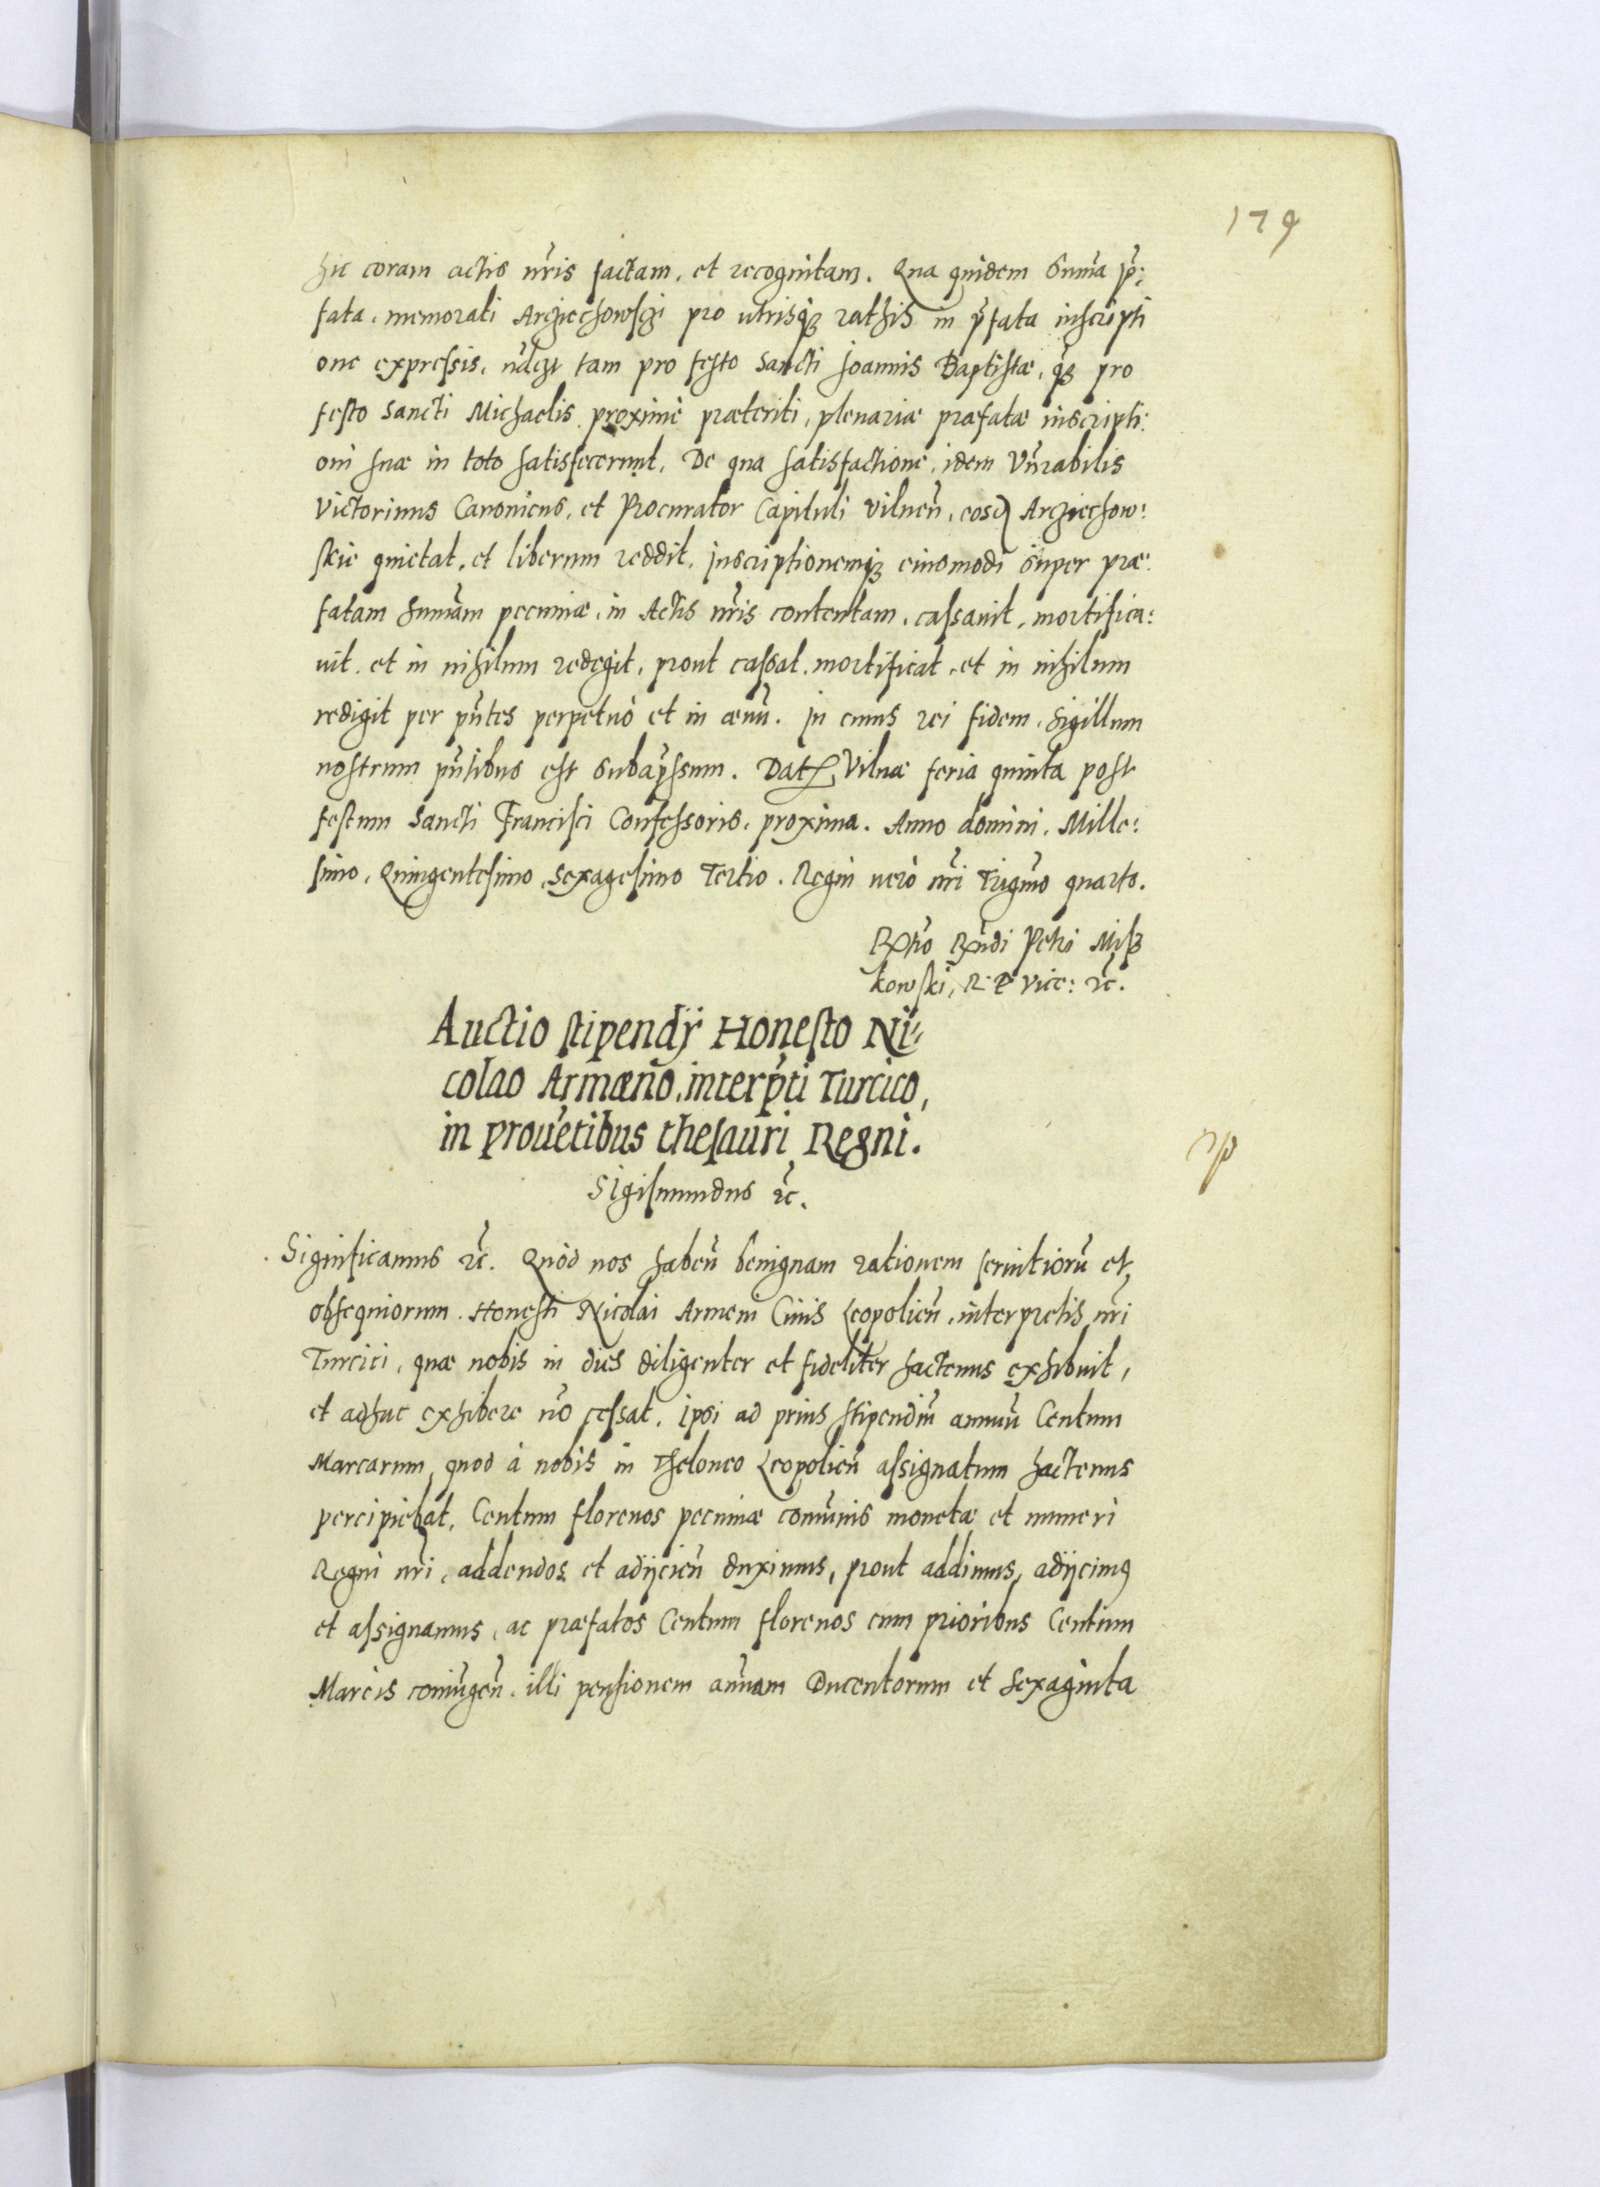 179
hic coram actis nr̃is factam, et recognitam. Qua quidem Sum̃a p̃:
fata, memorati Arciechowsczi pro utrisq̃ rathis in p̃fata inscripti
one expressis, tam pro festo Sancti Joannis Baptistæ, q̃ pro
festo Sancti Michaelis proximè præteriti, plenariæ præfatæ inscripti:
oni suæ in toto satisfecerunt, De qua satisfactione, idem Vñrabilis
Victorinus Canonicus, et Procurator Capituli Vilneñ, eosd Arciechow:
skie quietat, et liberum reddit, inscriptionemq̃ eiusmodi super præ:
fatam sum̃am pecuniæ, in Actis nr̃is contentam, cassavit, mortifica:
uit, et in nihilum redegit, prout cassat, mortificat, et in nihilum
redigit per pñtes perpetuò et in æuũ. In cuius rei fidem, Sigillum
nostrum pñtibus est Subap̃ssum. Dat, Vilnæ feria quinta post
festum Sancti Francisci Confessoris, proxima. Anno domini, Mille:
simo, Quingentesimo, Sexagesimo Tertio. Regni uerò nr̃i Trigm̃o quarto.
Rñdi Petri Miss
kowski, R P Vice: ẽc.
Auctio stipendij Honesto Ni:
colao Armæño, interp̃ti Turcico,
in prouẽtibus thesauri Regni.
Sigismundus ẽc.
Significamus ẽc. Quòd nos habeñ benignam rationem seruitiorũ et
obsequiorum, Honesti Nicolai Armeni Ciuis Leopolieñ, interpretis nr̃i
Turcici, quæ nobis in dies diligenter et fideliter hactenus exhibuit,
et adhuc exhibere nõ cessat, ipsi ad prius stipendiũ annuũ Centum
Marcarum, quod à nobis in Theloneo Leopolieñ assignatum hactenus
percipiebat, Centum florenos pecuniæ com̃unis monetæ et numeri
Regni nr̃i, addendos et adijcieñ duximus, prout addimus, adijcimus
et assignamus, ac præfatos Centum florenos cum prioribus Centum
Marcis coniũgeñ, illi pensionem añuam Ducentorum et Sexaginta